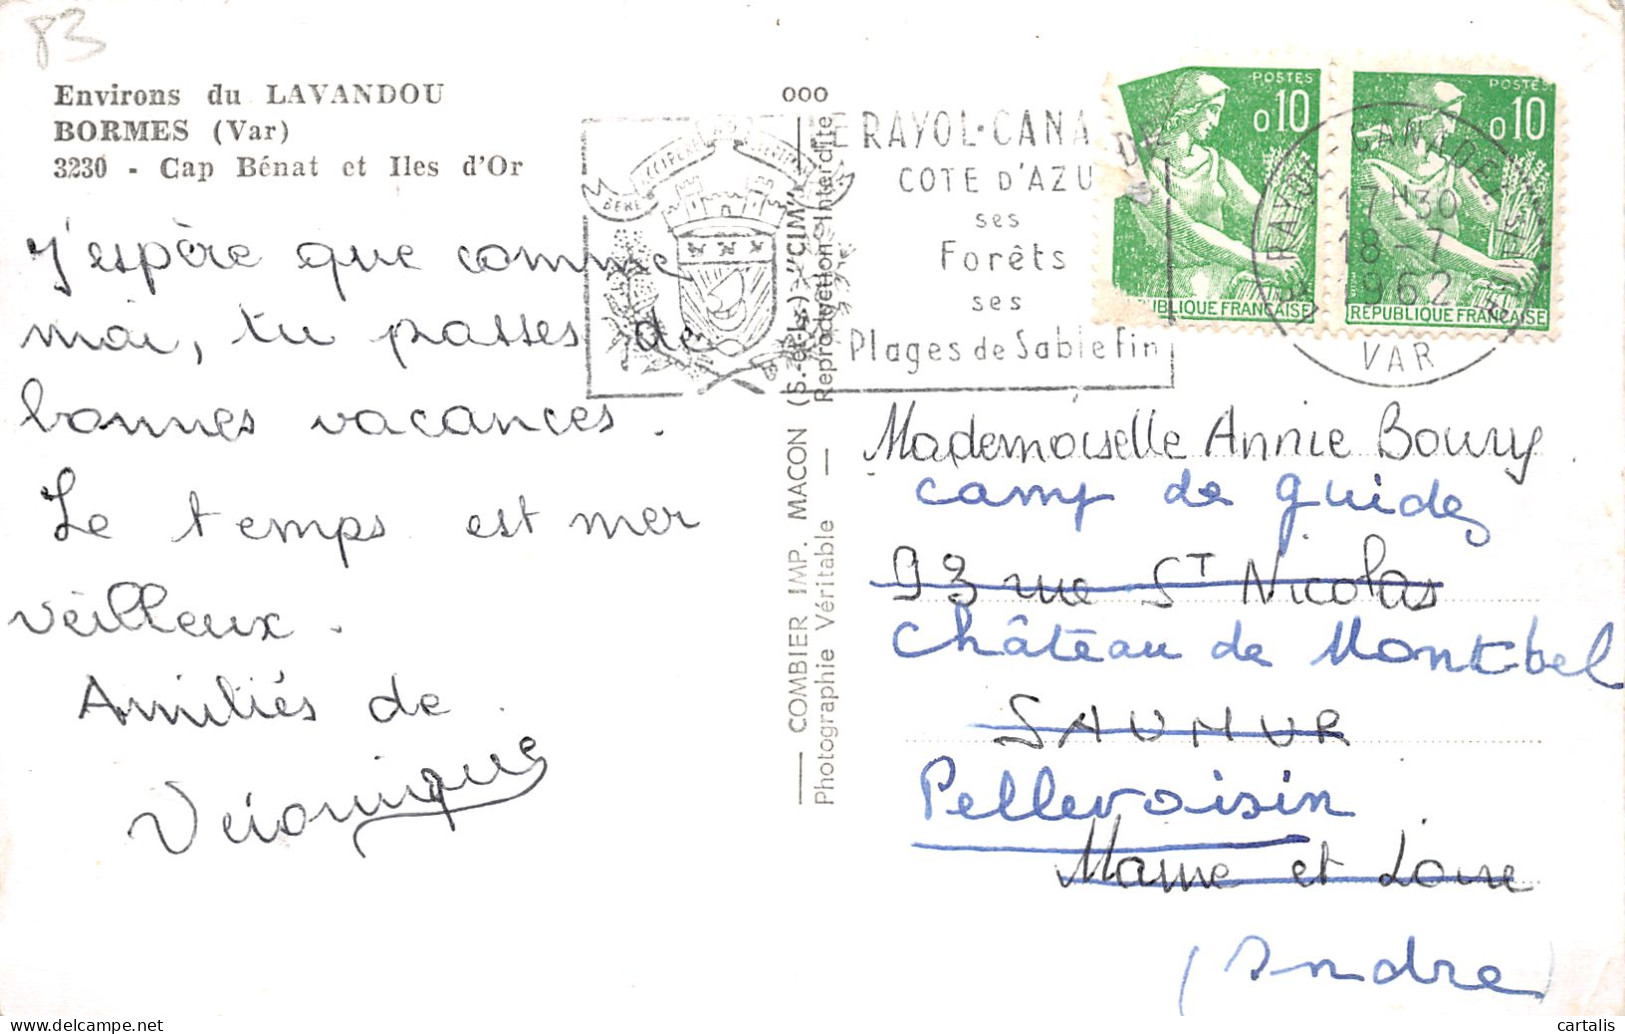 83
Environs du LAVANDOU
BORMES (Var)
3230 - Cap Bénat et Iles d'Or
J'espère que comme
moi, tu passes de
bonnes vacances.
Le temps est mer
veilleux.
Amitiés de
Véronique
COMBIER IMP. MACON (S.-et-L.) "CIM"
Photographie Véritable — Reproduction Interdite
ooo
E RAYOL-CANA
COTE D'AZU
ses
Forêts
ses
Plages de Sable Fin
POSTES
0,10
UBLIQUE FRANÇAISE
POSTES
0,10
REPUBLIQUE FRANÇAISE
RAYOL-CANADEL S/MER
17H30
18-7
1962
VAR
Mademoiselle Annie Boury
camp de guides
93 rue ST Nicolas
Château de Montbel
SAUMUR
Pellevoisin
Maine et Loire
(Indre)
cartalis
delcampe.net